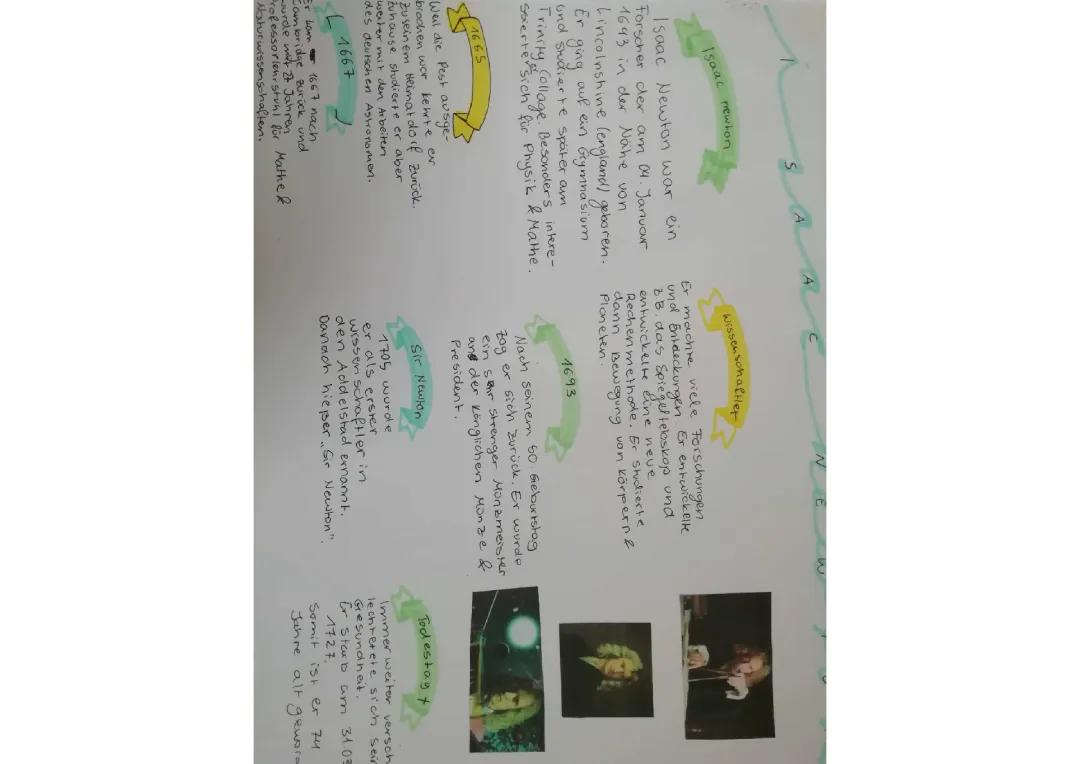 ISAAC NEWTO
Isaac newton
Isaac Newton war ein
Forscher der am 04. Januar
1693 in der Nähe von
Lincolnshine (england) geboren.
Er ging auf ein Gymnasium
und studierte später am
Trinity Collage. Besonders intere-
ssierte er sich für Physik & Mathe.
1665
Weil die Pest ausge-
brochen war kehrte er
zu seinem Heimatdorf zurück.
Zuhause studierte er aber
weiter mit den Arbeiten
des deutschen Astronomen.
1667
Er kam 1667 nach
Cambridge zurück und
wurde mit 26 Jahren
Professorlehrstuhl für Mathe &
Naturwissenschaften.
Wissenschaftler
Er machte viele Forschungen
und Entdeckungen. Er entwickelte
z.B. das Spiegelteleskop und
entwickelte eine neue
Rechenmethode. Er studierte
dann Bewegung von Körpern &
Planeten.
1693
Nach seinem 50. Geburtstag
zog er sich zurück. Er wurde
ein sehr strenger Münzmeister
an der königlichen Münze &
President.
Sir Newton
1705 wurde
er als erster
wissenschaftler in
den Addelstad ernannt.
Danach hieß er „Sir Newton".
Todestag †
Immer weiter versch
lechterete sich sein
Gesundheit.
Er starb am 31.03
1727.
Somit ist er 74
Jahre alt geword